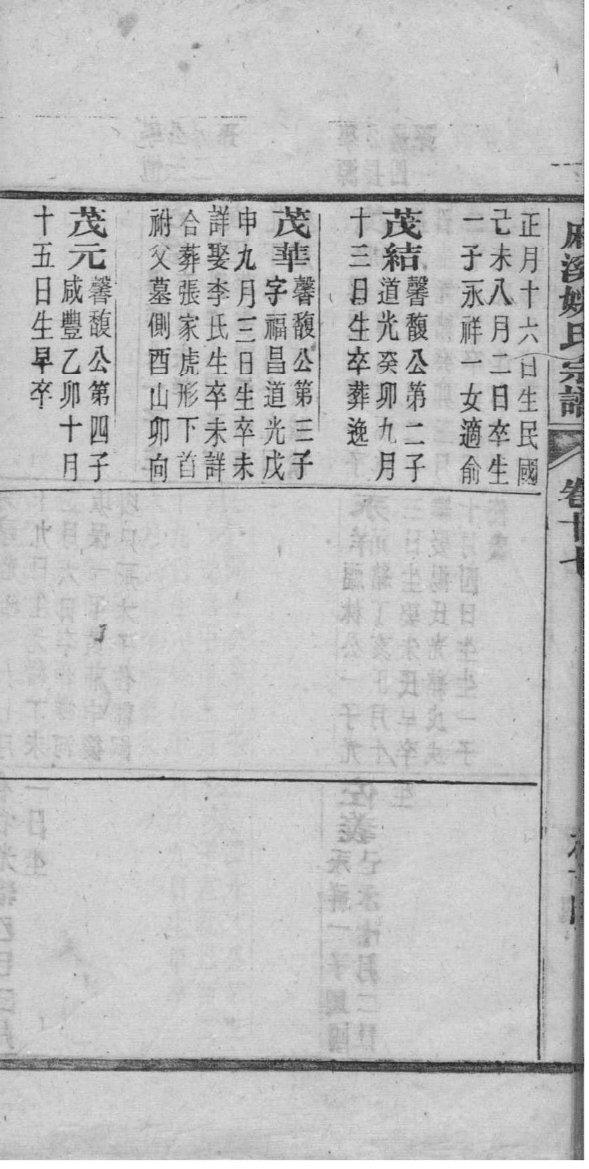 正月十六日生民國
己未八月二日卒生
一子永祥一女適俞
茂結馨馥公第二子
道光癸卯九月
十三日生卒葬逸
茂華馨馥公第三子
字福昌道光戊
申九月三日生卒未
詳娶李氏生卒未詳
合葬張家虎形下首
祔父墓側酉山卯向
茂元馨馥公第四子
咸豐乙卯十月
十五日生早卒
溪姚氏宗譜
卷十七